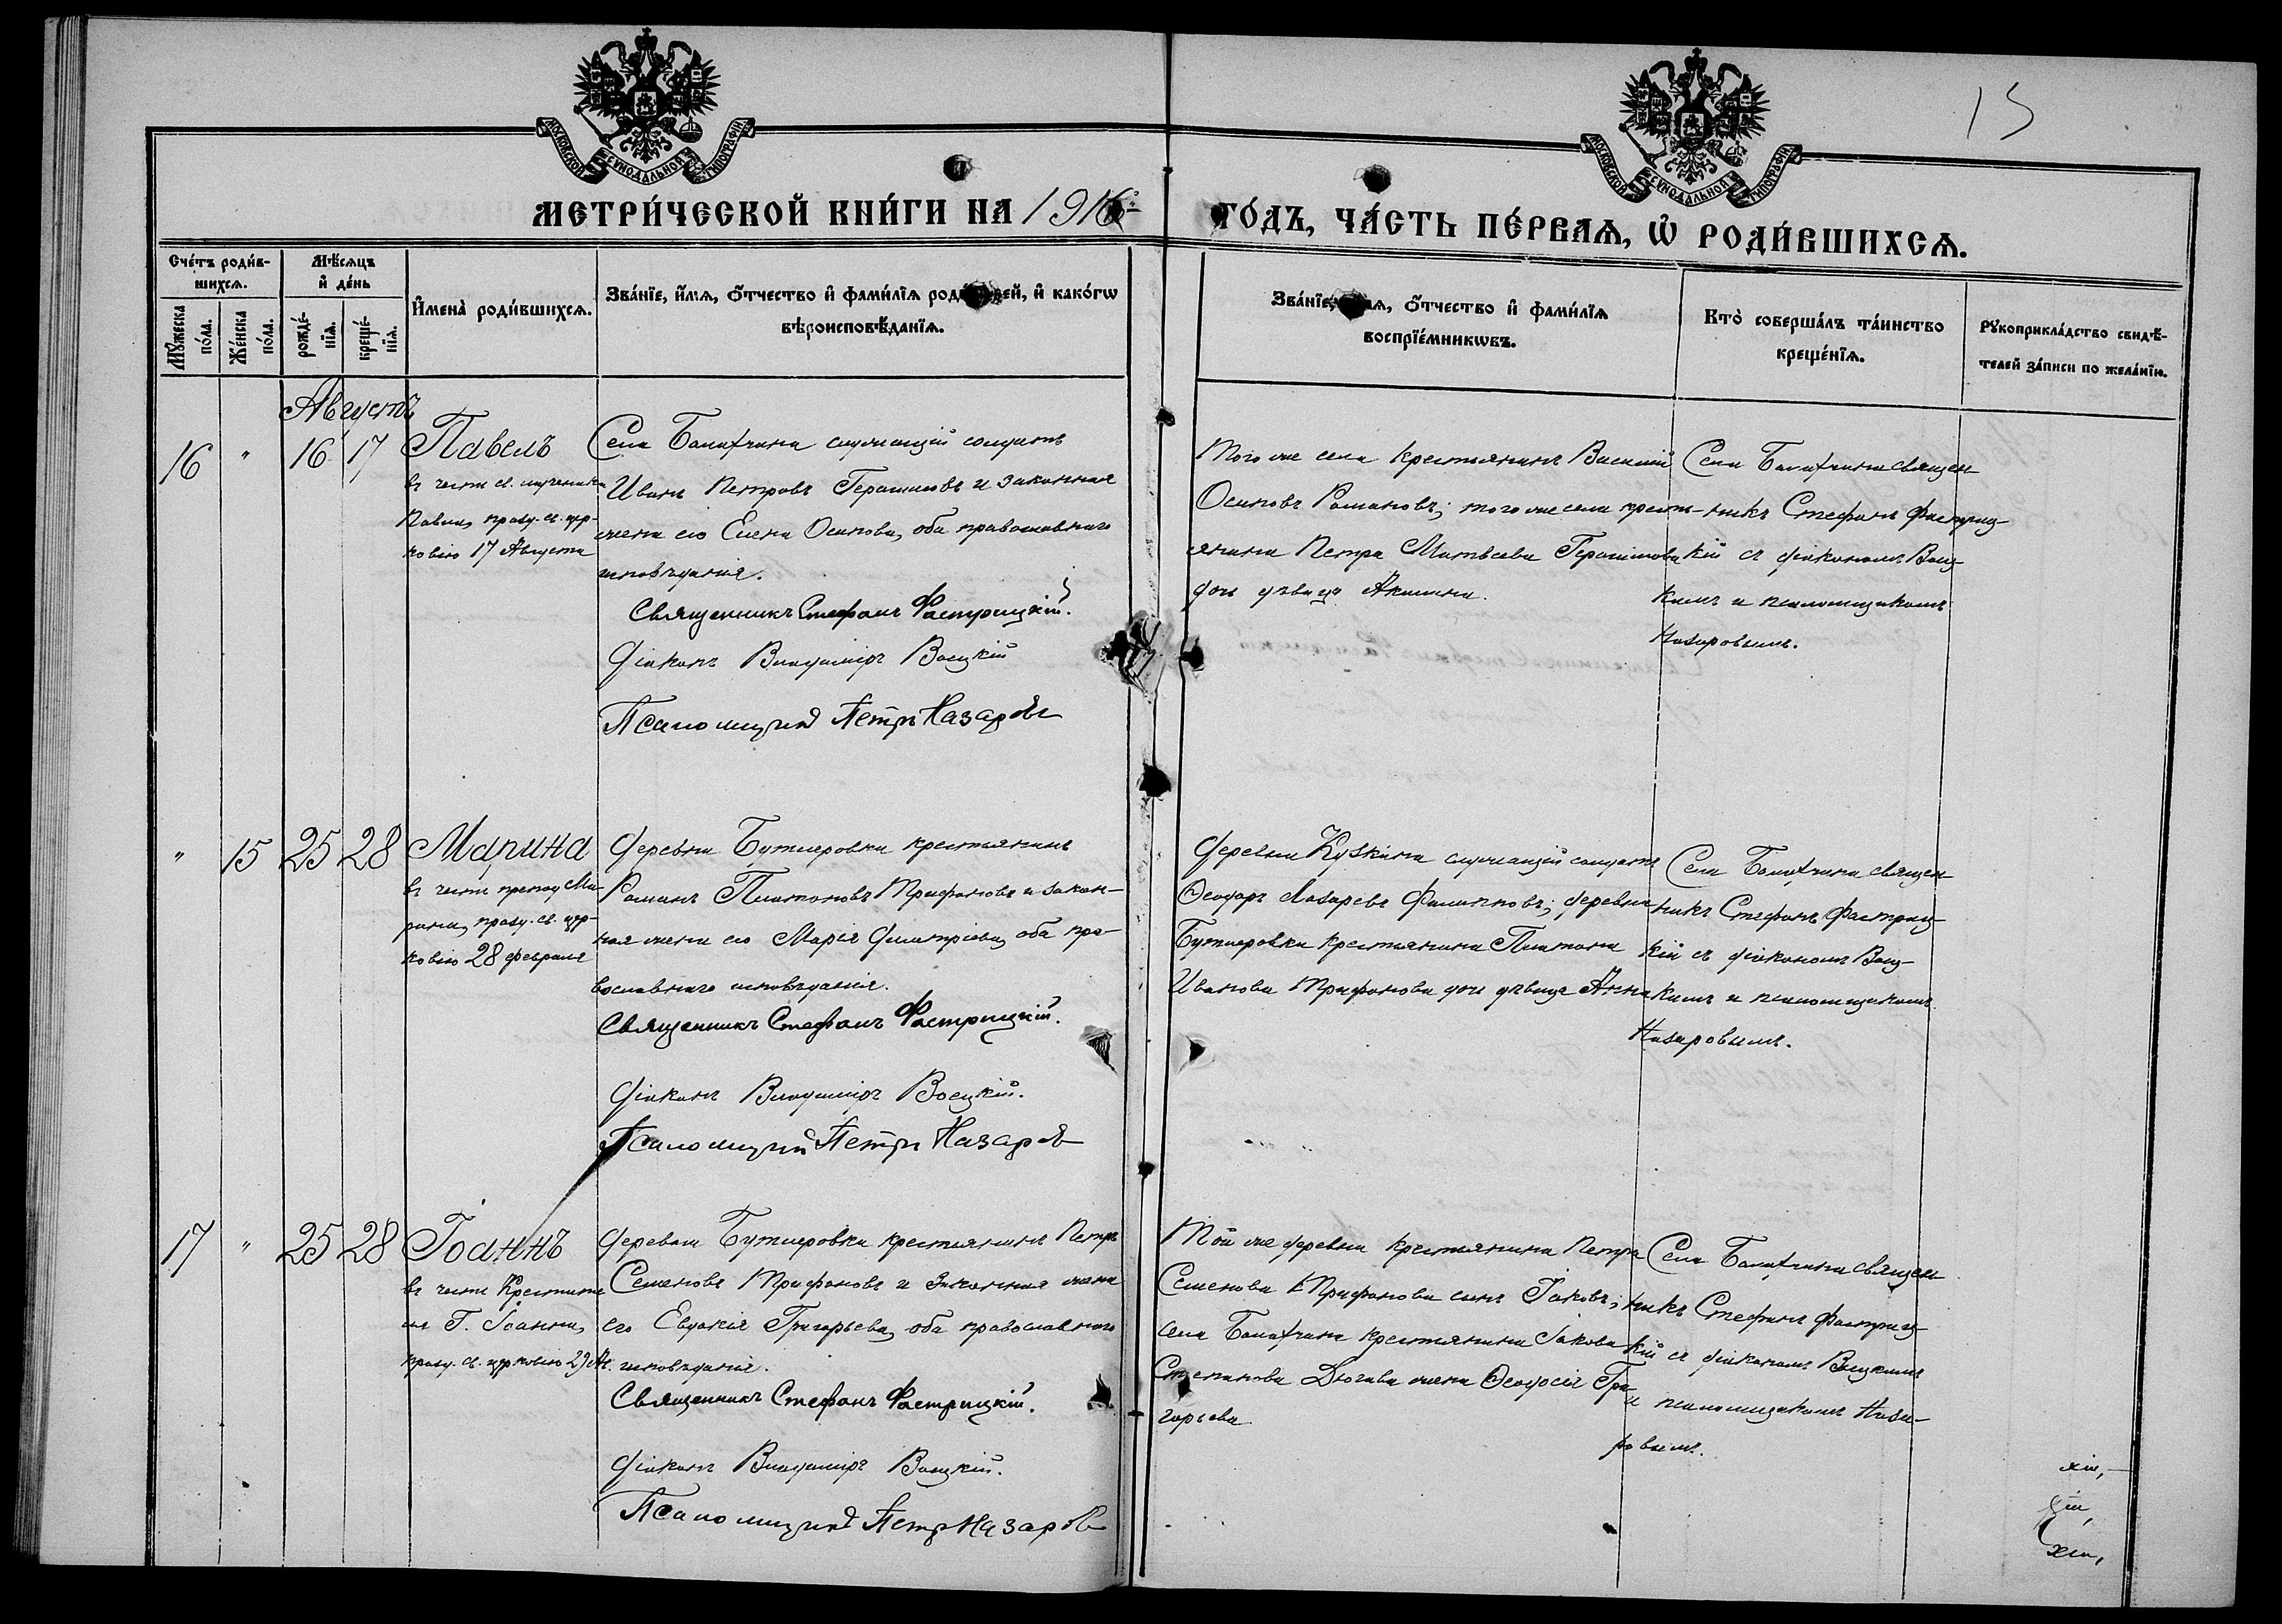 15
МОСКОВСКОЙ СѴНОДАЛЬНОЙ ТИПОГРАФІИ
МОСКОВСКОЙ СѴНОДАЛЬНОЙ ТИПОГРАФІИ
МЕТРИ́ЧЕСКОЙ КНИ́ГИ НА 1916
ГО́ДЪ, ЧА́СТЬ ПЕ́РВАѦ, Ѡ҆ РОДИ́ВШИХСѦ.
Сче́тъ роди́в-
шихсѧ.
Мѣ́сѧцъ
и҆ де́нь
Мꙋ́жеска по́ла.
Же́нска по́ла.
рожде́-нїѧ.
креще́-нїѧ.
И҆мена̀ роди́вшихсѧ.
Зва́нїе, и҆́мѧ, ѻ҆́тчество и҆ фами́лїѧ роди́телей, и҆ како́гѡ
вѣроисповѣ́данїѧ.
Зва́нїе, и҆́мѧ, ѻ҆́тчество и҆ фами́лїѧ
воспрїе́мникѡвъ.
Кто̀ соверша́лъ та́инство
креще́нїѧ.
Рꙋкоприкла́дство свидѣ́-
телей за́писи по жела́нїю.
Августъ
16 " 16 17 Павелъ
въ честь св. мученика
Павла, празд. св. цер-
ковію 17 Августа
Села служащій солдатъ
Иванъ Петровъ Герасимовъ и законная
жена его Елена Осипова, оба православнаго
исповѣданія.
Священникъ Стефанъ Фастрицкій.
Діаконъ Владиміръ Воецкій
Псаломщикъ Петръ Назаровъ
Того же села крестьянинъ Василій
Осиповъ Романовъ; того же села кресть-
янина Петра Матвѣева Герасимова
дочь дѣвица Акилина.
Села священ-
никъ Стефанъ Фастриц-
кій съ діакономъ Воец-
кимъ и псаломщикомъ
Назаровымъ.
" 15 25 28 Марина
въ честь препод. Ма-
рины, празд. св. цер-
ковію 28 февраля
Деревни Бутлеровки крестьянинъ
Романъ Платоновъ Трифоновъ и закон-
ная жена его Марія Димитріева, оба пра-
вославнаго исповѣданія.
Священникъ Стефанъ Фастрицкій.
Діаконъ Владиміръ Воецкій.
Псаломщикъ Петръ Назаровъ
Деревни Кузкина служащій солдатъ
Ѳеодоръ Лазаревъ Филипповъ; деревни
Бутлеровки крестьянина Платона
Иванова Трифонова дочь дѣвица Анна
Села священ-
никъ Стефанъ Фастриц-
кій съ діакономъ Воец-
кимъ и псаломщикомъ
Назаровымъ.
17 " 25 28 Іоаннъ
въ честь Крестите-
ля Г. Іоанна,
празд. св. церковію 29 Ав.
Деревни Бутлеровки крестьянинъ Петръ
Семеновъ Трифоновъ и законная жена
его Евдокія Григорьева, оба православнаго
исповѣданія.
Священникъ Стефанъ Фастрицкій.
Діаконъ Владиміръ Воецкій.
Псаломщикъ Петръ Назаровъ
Той же деревни крестьянина Петра
Семенова Трифонова сынъ Іаковъ;
села крестьянина Іакова
Степанова жена Ѳеодосія Гри-
горьева
Села священ-
никъ Стефанъ Фастриц-
кій съ діакономъ Воецкимъ
и псаломщикомъ Наза-
ровымъ.